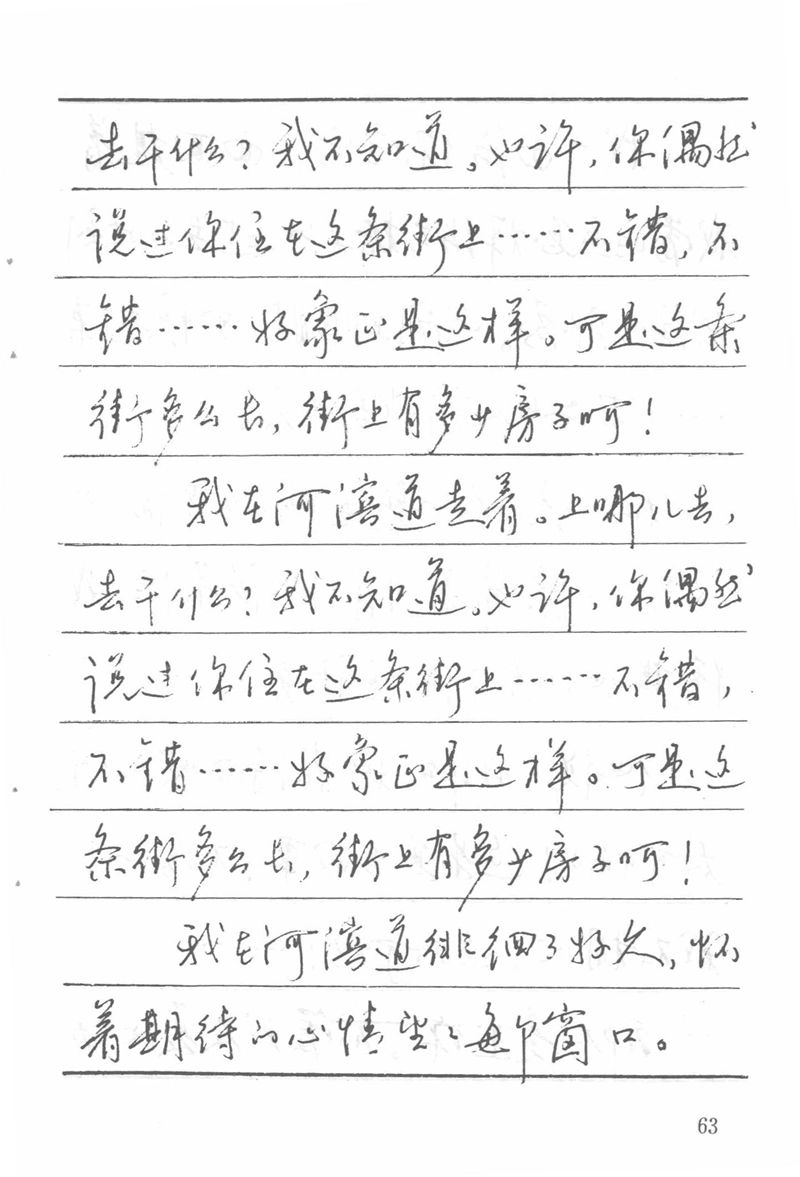 去干什么？我不知道。也许，你偶然
说过你住在这条街上……不错，不
错……好象正是这样。可是这条
街多么长，街上有多少房子呵！
我在河滨道走着。上哪儿去，
去干什么？我不知道。也许，你偶然
说过你住在这条街上……不错，
不错……好象正是这样。可是这
条街多么长，街上有多少房子呵！
我在河滨道徘徊了好久，怀
着期待的心情望望每个窗口。
63